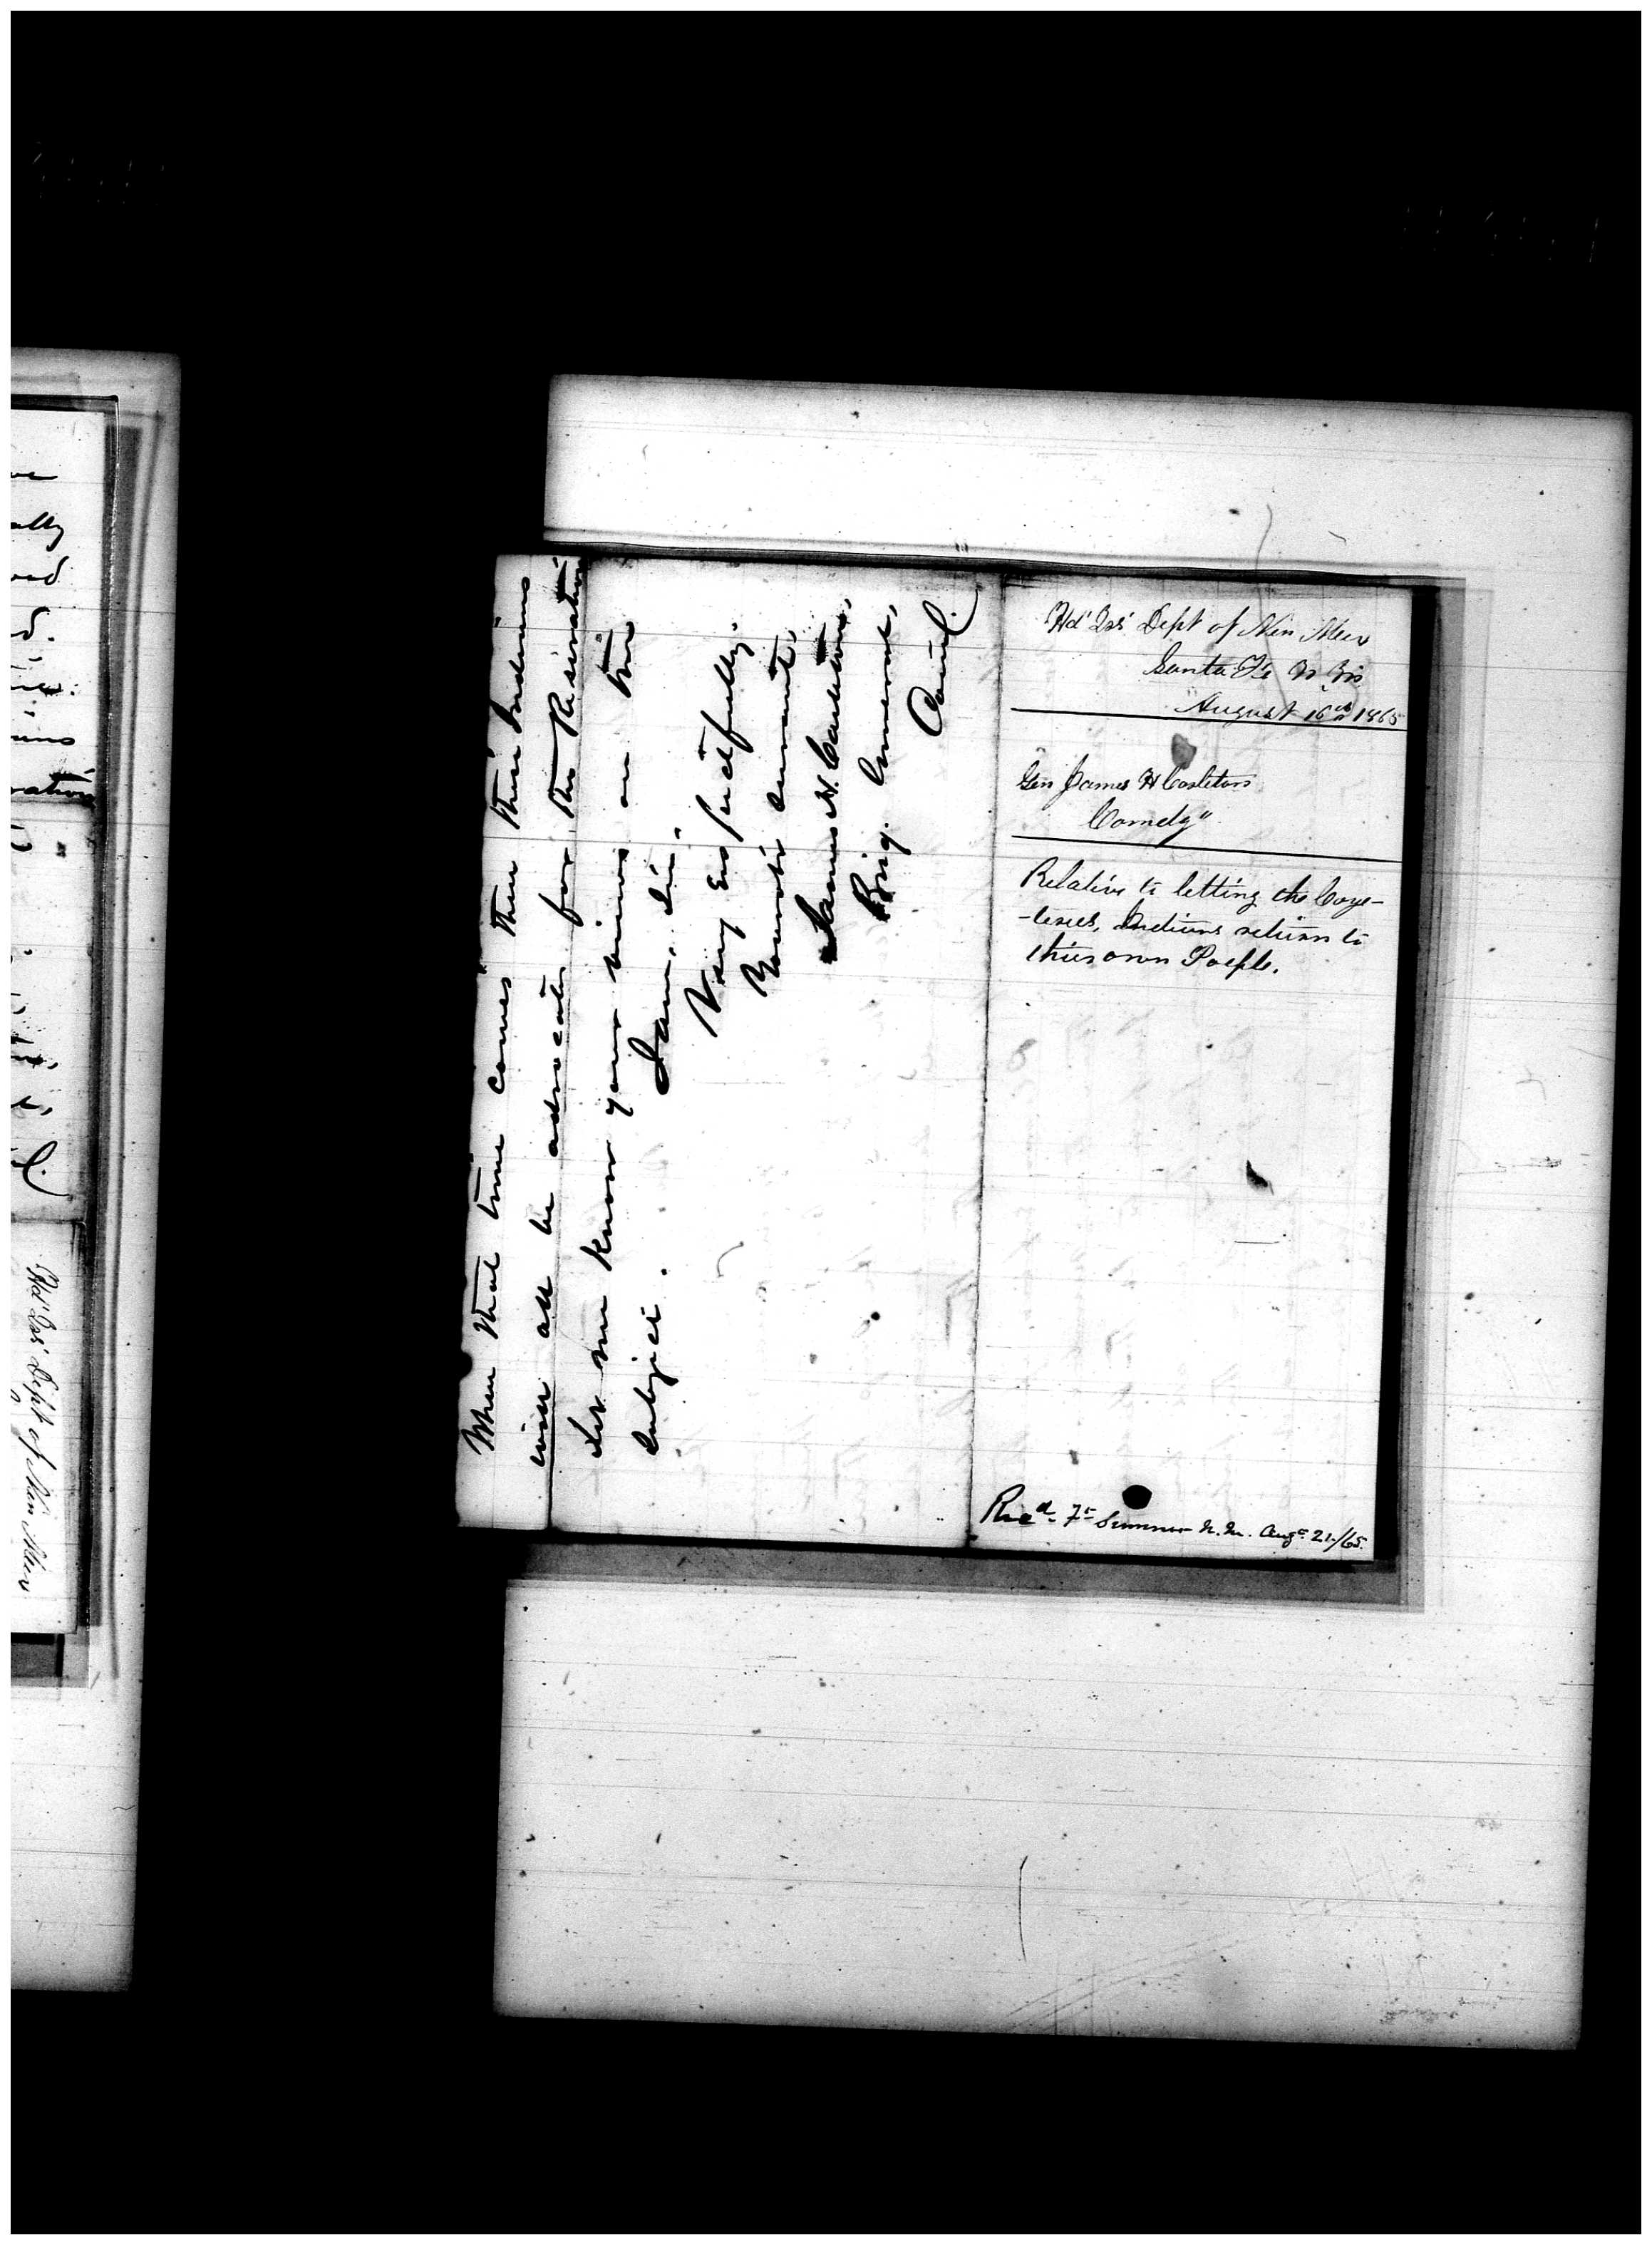 When that time comes then these Indians
will all be advocates for the Reservation.
Let me know your views on this
subject.
I am, Sir,
Very Respectfully
Your obt servant,
James H. Carleton,
Brig. General,
Comd.
Hd Qrs Dept of New Mex
Santa Fe N. M.
August 16th 1865
Gen James H Carleton
Comdg"
Relative to letting the Coyo-
-teros, Indians return to
their own People.
Recd. Ft Sumner N. M. Augt 21./65.
Hd Qrs Dept of New Mex